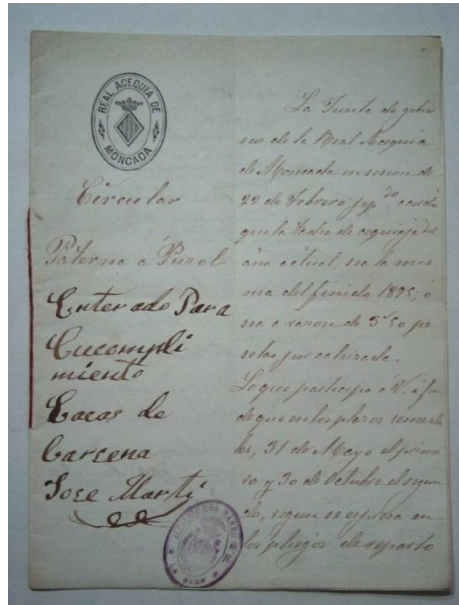 REAL ACEQUIA DE
MONCADA
Circular
Paterna á Puzol
Enterado Para
Cucompli
miento
Casas de
Barcena
Jose Marti
La Junta de gobier
no de la Real Acequia
de Moncada en sesion de
22 de Febrero ppdo. acordó
que la tacha de cequiaje del
año actual, sea la mis
ma del finido 1895; ó
sea a razon de 3'50 pe
setas por cahizada.
Lo que participo á V. á fin
de que en los plazos semestra
les, 31 de Mayo el prime
ro y 30 de Octubre el segun
do, segun se espresa en
los pliegos de reparto